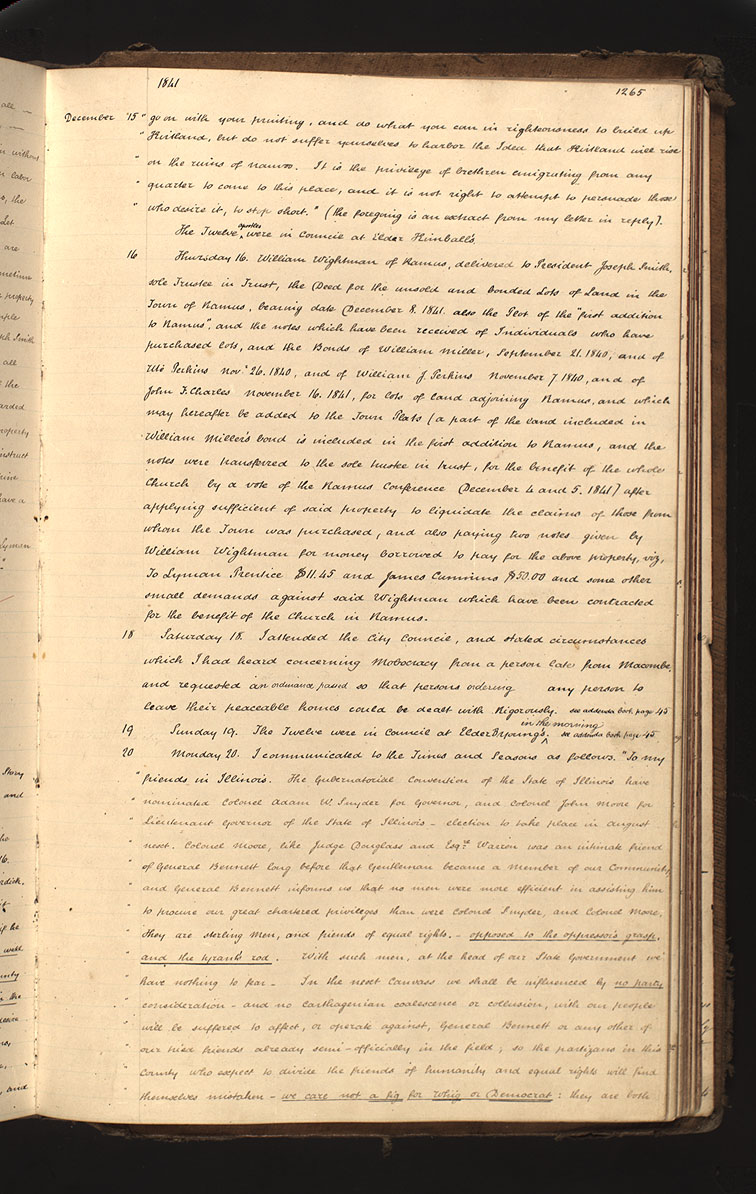 1841
1265
December 15 " go on with your printing, and do what you can in righteousness to build up
" Kirtland, but do not suffer yourselves to harbor the Idea that Kirtland will rise
" on the ruins of Nauvoo. It is the privilege of brethren emigrating from any
" quarter to come to this place, and it is not right to attempt to persuade those
" who desire it, to stop short." (the foregoing is an extract from my letter in reply).
The Twelve apostles were in Council at Elder Kimball's
16 Thursday 16. William Wightman of Ramus, delivered to President Joseph Smith,
sole Trustee in Trust, the Deed for the unsold and bonded Lots of Land in the
Town of Ramus, bearing date December 8. 1841. also the Plot of the "first addition
to Ramus", and the notes which have been received of Individuals who have
purchased lots, and the Bonds of William Miller, September 21. 1840, and of
Wm Perkins Nov. 26. 1840, and of William J. Perkins November 7 1840, and of
John F. Charles November 16. 1841, for lots of land adjoining Ramus, and which
may hereafter be added to the Town Plats (a part of the land included in
William Miller's bond is included in the first addition to Ramus, and the
notes were transferred to the sole trustee in trust, for the benefit of the whole
Church by a vote of the Ramus Conference December 4 and 5. 1841) after
applying sufficient of said property to liquidate the claims of those from
whom the Town was purchased, and also paying two notes given by
William Wightman for money borrowed to pay for the above property, viz,
To Lyman Prentice $11.45 and James Cummins $50.00 and some other
small demands against said Wightman which have been contracted
for the benefit of the Church in Ramus.
18 Saturday 18. I attended the City Council, and stated circumstances
which I had heard concerning Mobocracy from a person late from Macombe,
and requested an ordinance passed so that persons ordering any person to
leave their peaceable homes could be dealt with Rigorously. see addenda book, page 45
19 Sunday 19. The Twelve were in Council at Elder B. Young's. in the morning see addenda book page 45
20 Monday 20. I communicated to the Times and Seasons as follows. "To my
" friends in Illinois. The Gubernatorial Convention of the State of Illinois have
" nominated Colonel Adam W. Snyder for Governor, and Colonel John Moore for
" Lieutenant Governor of the State of Illinois – election to take place in August
" next. Colonel Moore, like Judge Douglass and Esqre Warren was an intimate friend
" of General Bennett long before that Gentleman became a member of our Community
" and General Bennett informs us that no men were more efficient in assisting him
" to procure our great chartered privileges than were Colonel Snyder, and Colonel Moore,
" they are sterling Men, and friends of equal rights. – opposed to the oppressor's grasp,
" and the tyrant's rod. With such men, at the head of our State Government we
" have nothing to fear – In the next Canvass we shall be influenced by no party
" consideration – and no Carthagenian coalescence or collusion, with our people
" will be suffered to affect, or operate against, General Bennett or any other of
" our tried friends already semi-officially in the field; so the partizans in this
" County who expect to divide the friends of humanity and equal rights will find
" themselves mistaken – we care not a fig for Whig or Democrat: they are both